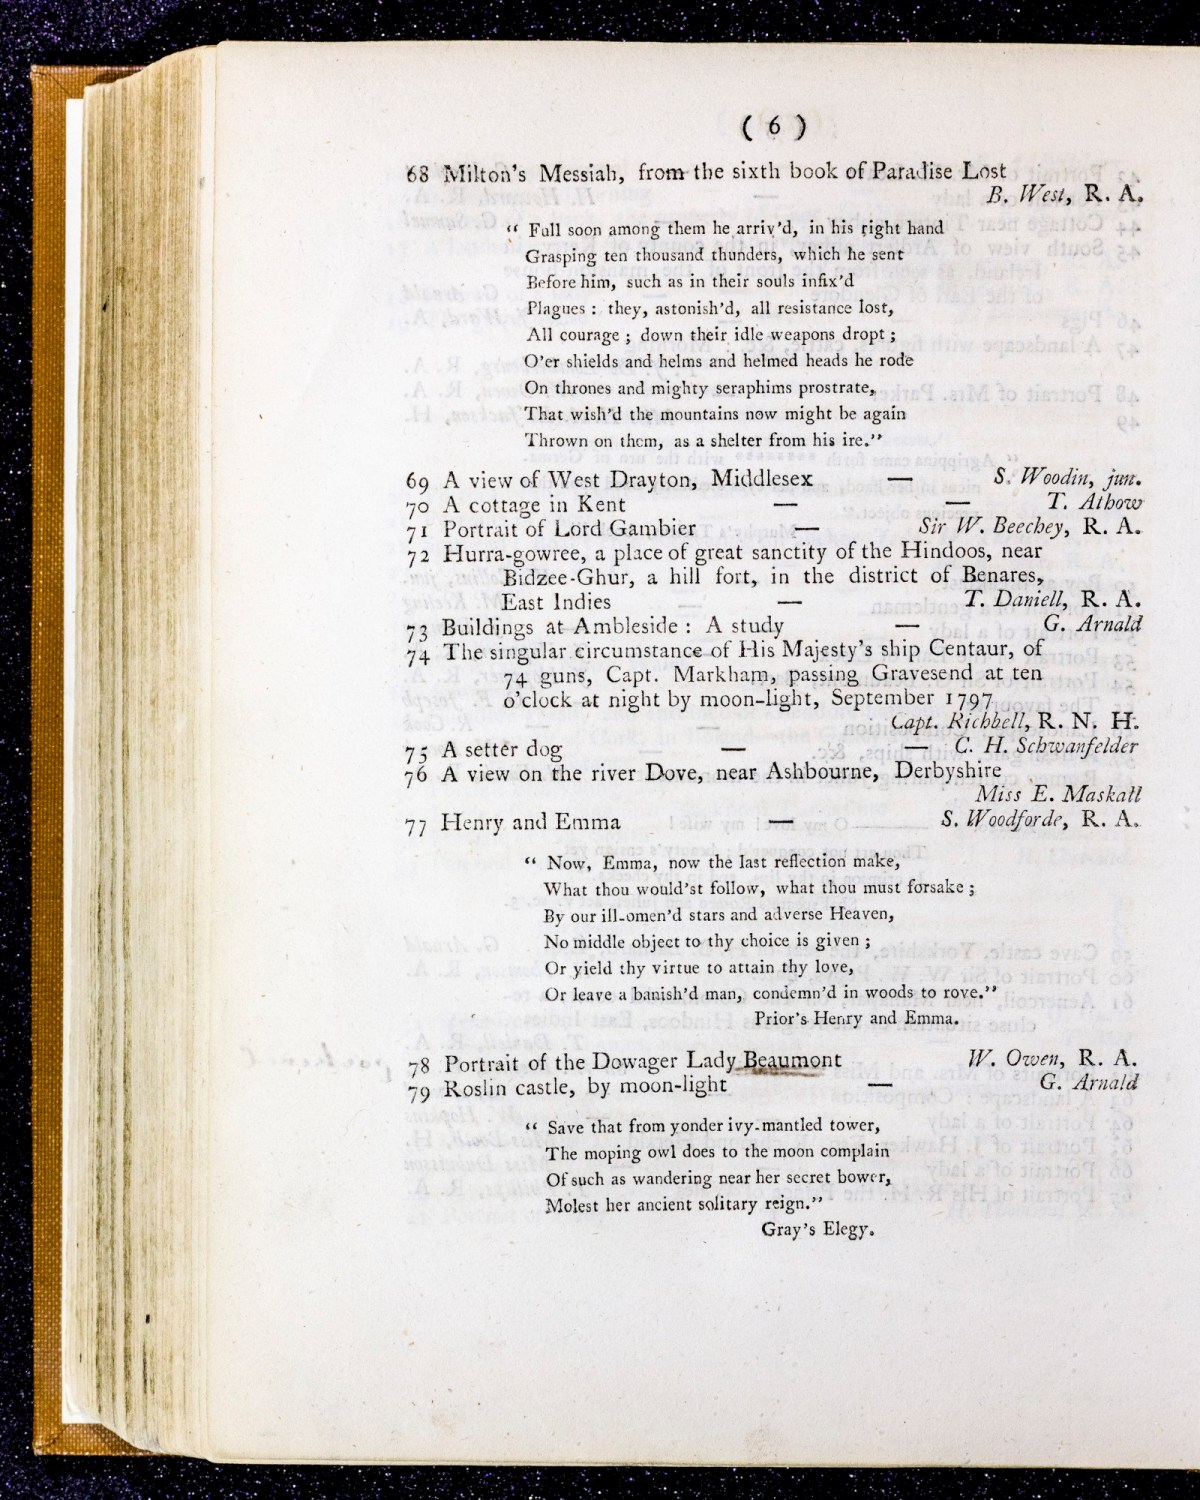 ( 6 )
68 Milton's Messiah, from the sixth book of Paradise Lost
B. West, R. A.
“ Full soon among them he arriv'd, in his right hand
Grasping ten thousand thunders, which he sent
Before him, such as in their souls infix'd
Plagues : they, astonish'd, all resistance lost,
All courage ; down their idle weapons dropt ;
O'er shields and helms and helmed heads he rode
On thrones and mighty seraphims prostrate,
That wish'd the mountains now might be again
Thrown on them, as a shelter from his ire.”
69 A view of West Drayton, Middlesex — S. Woodin, jun.
70 A cottage in Kent — — T. Athow
71 Portrait of Lord Gambier — Sir W. Beechey, R. A.
72 Hurra-gowree, a place of great sanctity of the Hindoos, near
Bidzee-Ghur, a hill fort, in the district of Benares,
East Indies — T. Daniell, R. A.
73 Buildings at Ambleside : A study — G. Arnald
74 The singular circumstance of His Majesty's ship Centaur, of
74 guns, Capt. Markham, passing Gravesend at ten
o'clock at night by moon-light, September 1797
Capt. Richbell, R. N. H.
75 A setter dog — — C. H. Schwanfelder
76 A view on the river Dove, near Ashbourne, Derbyshire
Miss E. Maskall
77 Henry and Emma — S. Woodforde, R. A.
“ Now, Emma, now the last reflection make,
What thou would'st follow, what thou must forsake ;
By our ill-omen'd stars and adverse Heaven,
No middle object to thy choice is given ;
Or yield thy virtue to attain thy love,
Or leave a banish'd man, condemn'd in woods to rove.”
Prior's Henry and Emma.
78 Portrait of the Dowager Lady Beaumont W. Owen, R. A.
79 Roslin castle, by moon-light — G. Arnald
“ Save that from yonder ivy-mantled tower,
The moping owl does to the moon complain
Of such as wandering near her secret bower,
Molest her ancient solitary reign.”
Gray's Elegy.